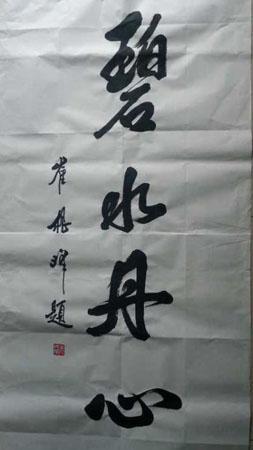 碧水丹心
崔丹晖题